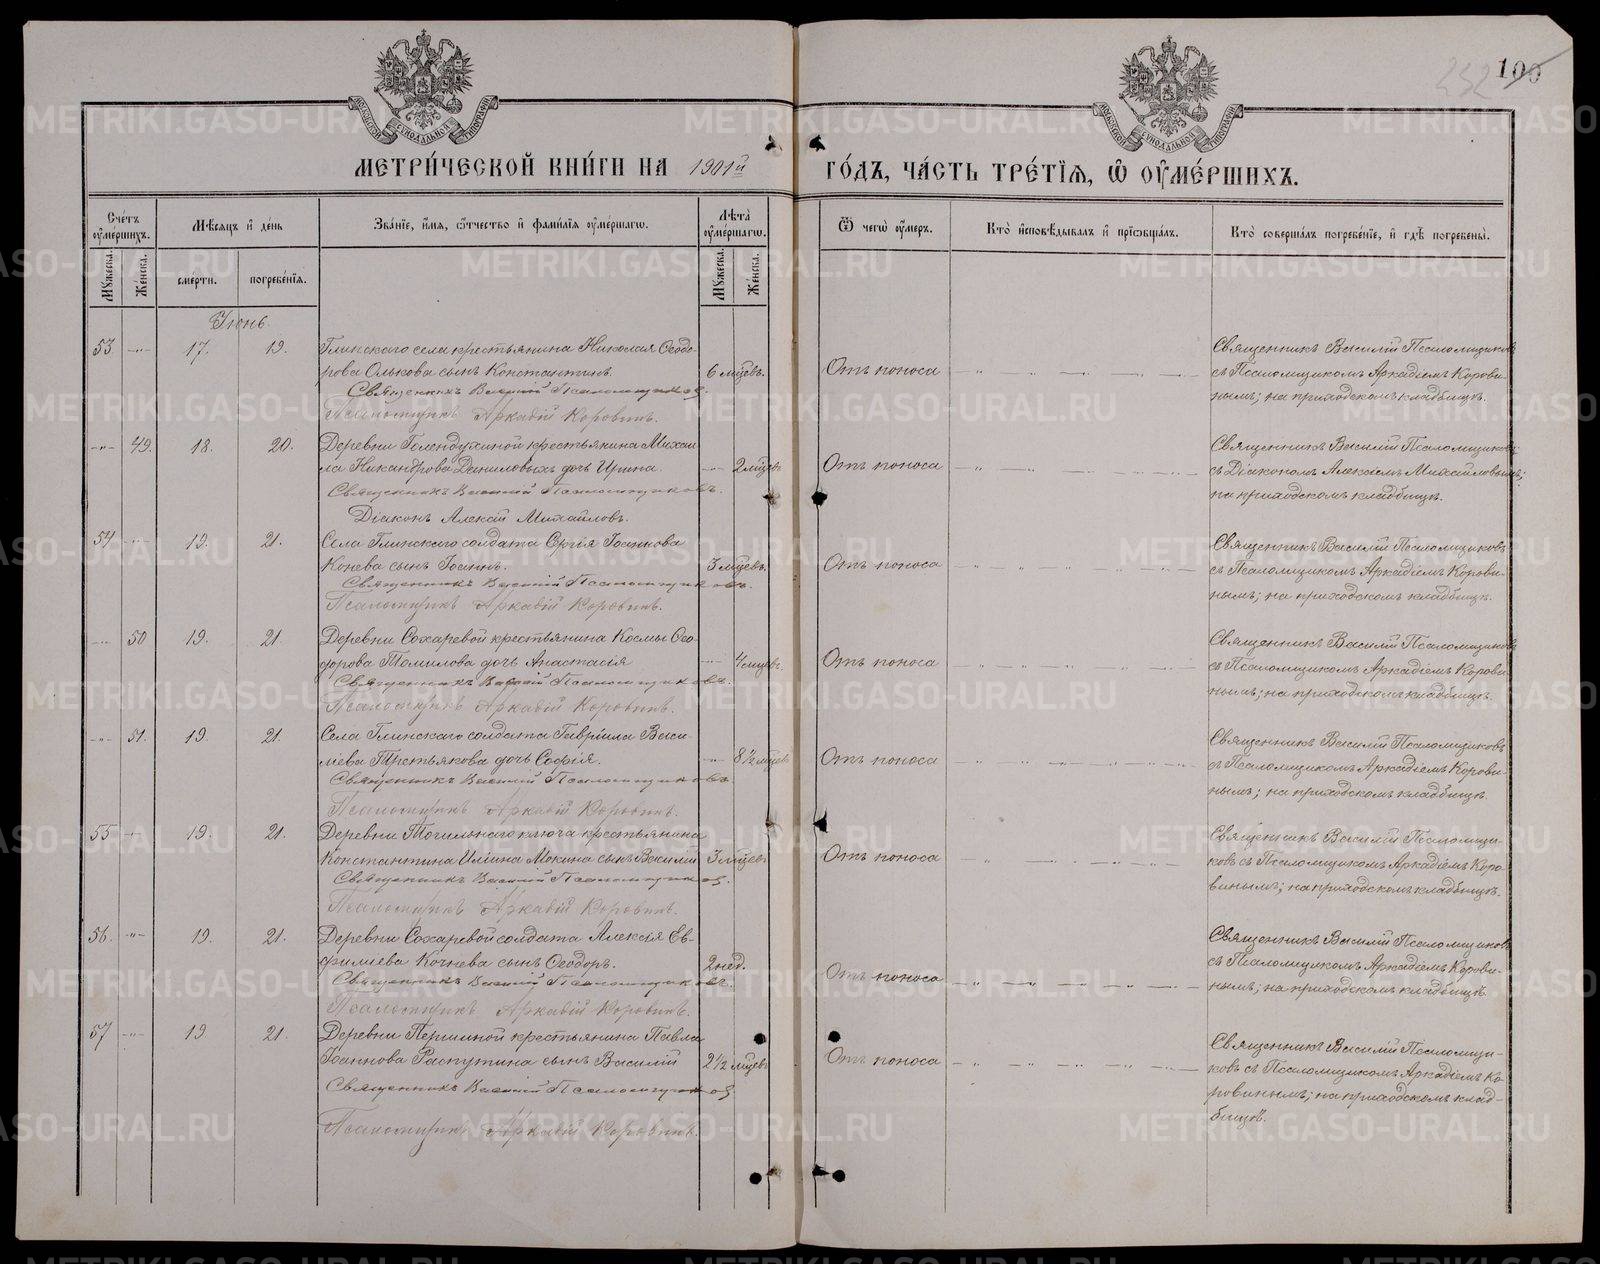 100
232
МОСКОВСКОЙ СѴНОДАЛЬНОЙ ТИПОГРАФІИ
МОСКОВСКОЙ СѴНОДАЛЬНОЙ ТИПОГРАФІИ
МЕТРИ́ЧЕСКОЙ КНИ́ГИ НА 1901й ГО́ДЪ, ЧА́СТЬ ТРЕ́ТІѦ, Ѡ ОУМЕ́РШИХЪ.
Сче́тъ оумершихъ.
Мѣсяцъ и день
Званіе, имя, отчество и фамилія оумершагѡ.
Лѣта оумершагѡ.
Ѿ чегѡ оумеръ.
Кто исповѣдывалъ и пріобщалъ.
Кто совершалъ погребеніе, и гдѣ погребены.
Мужеска.
Женска.
смерти.
погребенія.
Мужеска.
Женска.
Іюнь.
53 -„- 17. 19. Глинскаго села крестьянина Николая Ѳеодо-
рова Олькова сынъ Константинъ. 6 мцевъ.
Священникъ Василій Псаломщиковъ.
Псаломщикъ Аркадій Коровинъ.
Отъ поноса
Священникъ Василій Псаломщиковъ
съ Псаломщикомъ Аркадіемъ Корови-
нымъ; на приходскомъ кладбищѣ.
-„- 49. 18. 20. Деревни Голендухиной крестьянина Михаи
ла Никандрова Даниловыхъ дочь Ирина. -„- 2 мцевъ
Священникъ Василій Псаломщиковъ.
Діаконъ Алексій Михайловъ.
Отъ поноса
Священникъ Василій Псаломщиковъ
съ Діакономъ Алексіемъ Михайловымъ;
на приходскомъ кладбищѣ.
54 -„- 19. 21. Села Глинскаго солдата Сергія Іоаннова
Конева сынъ Іоаннъ. 3 мцевъ.
Священникъ Василій Псаломщиковъ.
Псаломщикъ Аркадій Коровинъ.
Отъ поноса
Священникъ Василій Псаломщиковъ
съ Псаломщикомъ Аркадіемъ Корови-
нымъ; на приходскомъ кладбищѣ.
-„- 50 19. 21 Деревни Сохаревой крестьянина Космы Ѳео-
дорова Томилова дочь Анастасія -„- 4 мцевъ.
Священникъ Василій Псаломщиковъ.
Псаломщикъ Аркадій Коровинъ.
Отъ поноса
Священникъ Василій Псаломщиковъ
съ Псаломщикомъ Аркадіемъ Корови-
нымъ; на приходскомъ кладбищѣ.
-„- 51. 19. 21 Села Глинскаго солдата Гавріила Васи-
ліева Третьякова дочь Софія. -„- 8½ мцевъ
Священникъ Василій Псаломщиковъ
Псаломщикъ Аркадій Коровинъ.
Отъ поноса
Священникъ Василій Псаломщиковъ
съ Псаломщикомъ Аркадіемъ Корови-
нымъ; на приходскомъ кладбищѣ.
55 -„- 19. 21. Деревни Точильнаго ключа крестьянина
Константина Иліина Мокина сынъ Василій 3 мцевъ
Священникъ Василій Псаломщиковъ.
Псаломщикъ Аркадій Коровинъ.
Отъ поноса
Священникъ Василій Псаломщи-
ковъ съ Псаломщикомъ Аркадіемъ Коро-
винымъ; на приходскомъ кладбищѣ.
56. -„- 19. 21. Деревни Сохаревой солдата Алексія Ев-
фиміева Кочнева сынъ Ѳеодоръ. 2 нед.
Священникъ Василій Псаломщиковъ.
Псаломщикъ Аркадій Коровинъ.
Отъ поноса
Священникъ Василій Псаломщиковъ
съ Псаломщикомъ Аркадіемъ Корови-
нымъ; на приходскомъ кладбищѣ.
57 -„- 19 21. Деревни Першиной крестьянина Павла
Іоаннова Распутина сынъ Василій 2½ мцевъ
Священникъ Василій Псаломщиковъ
Псаломщикъ Аркадій Коровинъ.
Отъ поноса
Священникъ Василій Псаломщи-
ковъ съ Псаломщикомъ Аркадіемъ Ко-
ровинымъ; на приходскомъ клад-
бищѣ.
METRIKI.GASO-URAL.RU